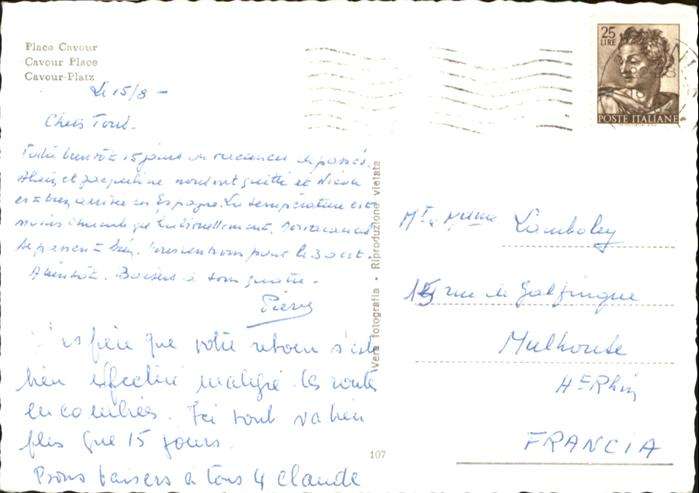 Place Cavour
Cavour Place
Cavour-Platz
Le 15/8 -
Chers Tous.
bientôt 15 jours de vacances de passés
Alain et Jacqueline nous ont quitté et Nicole
est bien arrivée en Espagne. La température est
moins chaude qu'habituellement. Nos vacances
se passent bien. pour le 30 aout.
A bientôt. Baisers à tous quatre.
Pierre
J'espère que votre retour s'est
bien effectué malgré les routes
encombrées. Ici tout va bien
plus que 15 jours.
Gros baisers a tous 4 Claude
Vera fotografia - Riproduzione vietata
107
25
LIRE
POSTE ITALIANE
Mr & Mme Lamboley
15 rue de Galfingue
Mulhouse
Ht Rhin
FRANCIA